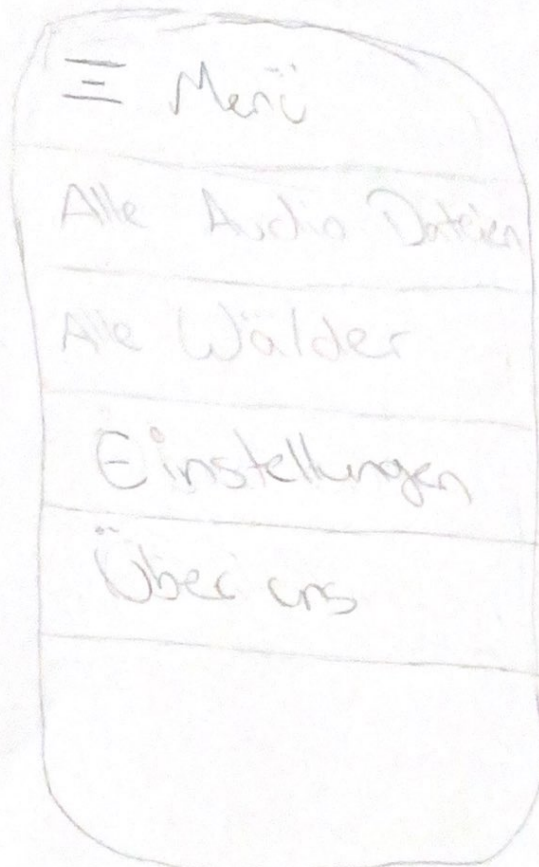 Menü
Alle Audio Dateien
Alle Wälder
Einstellungen
Über uns